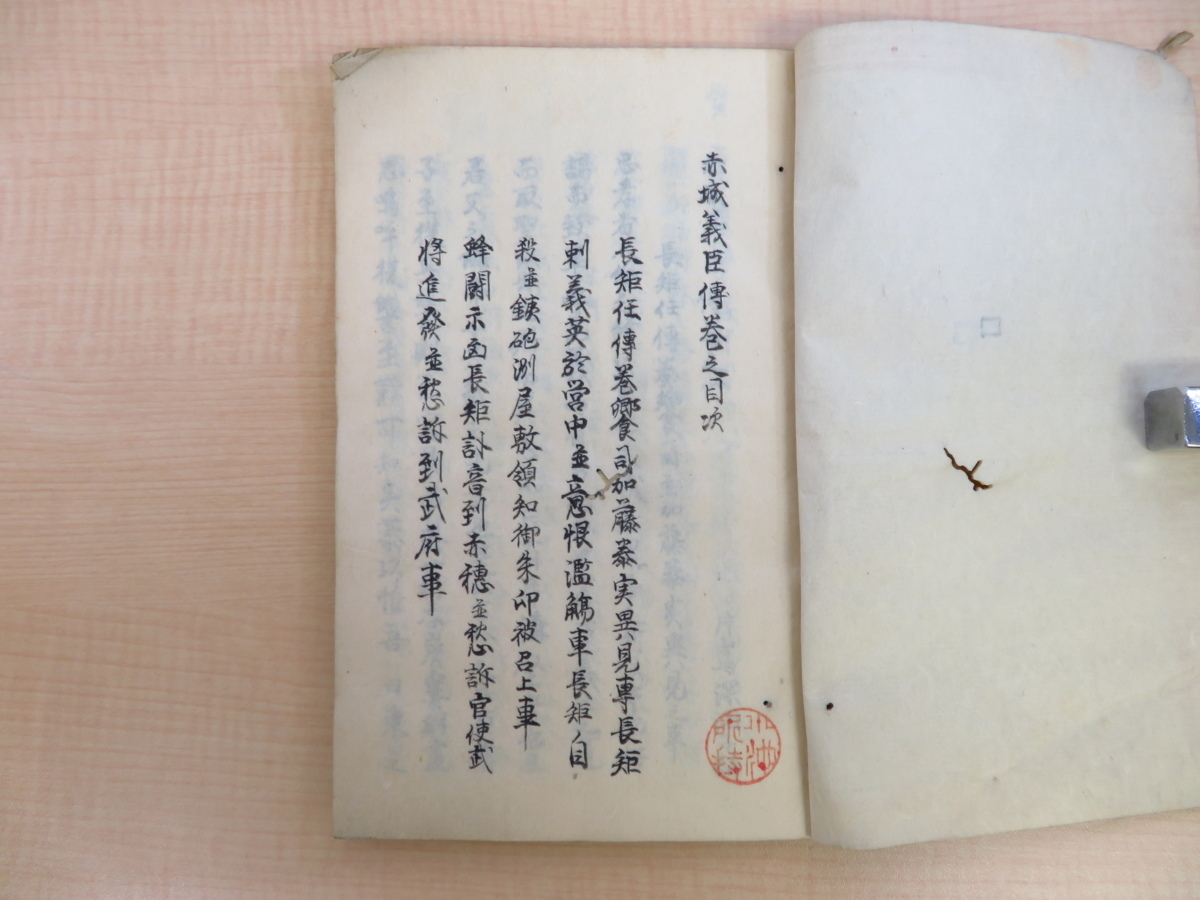 赤城義臣傳巻之目次
長矩任傳巻饗司加藤泰実異見専長矩
刺義英於営中並意恨濫觴車長矩自
殺並鉄砲洲屋敷領知御朱印被召上車
蜂閙示凾長矩訃音到赤穂並愁訴官使武
將進發並愁訴到武府車